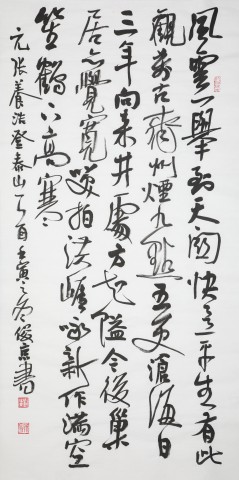 風雲一舉到天關快意平生有此
觀萬古齊州煙九點五更滄海日
三竿向來井處方知隘今後巢
居亦覺寬笑拍洪崖詠新作滿空
笙鶴下高寒
元張養浩登泰山一首壬寅之冬俊京書